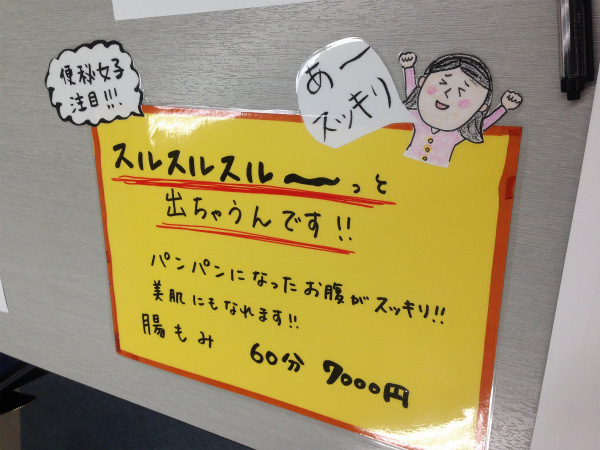 便秘女子
注目!!!
あ〜
スッキリ
スルスルスル〜っと
出ちゃうんです!!
パンパンになったお腹がスッキリ!!
美肌にもなれます!!
腸もみ 60分 7000円